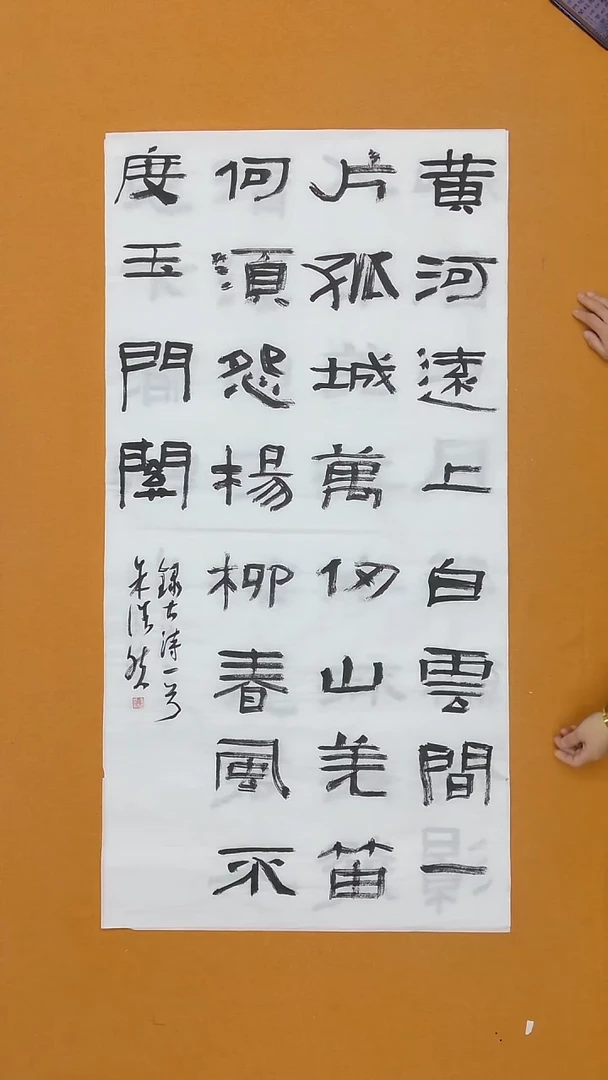 黃河遠上白雲間一
片孤城萬仞山羌笛
何須怨楊柳春風不
度玉門關
錄古詩一首
朱浩然